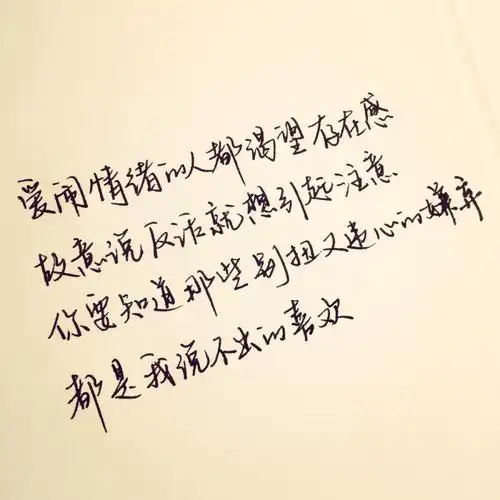 爱闹情绪的人都渴望存在感
故意说反话就想引起注意
你要知道那些别扭又违心的嫌弃
都是我说不出的喜欢